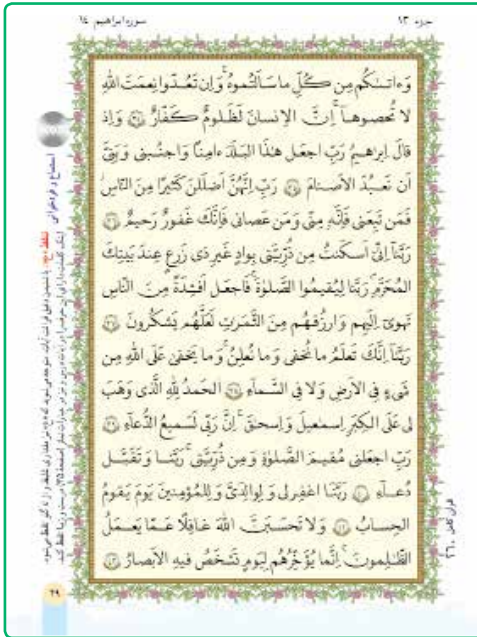 جزء ۱۳
سوره ابراهیم ۱۴
وَءاتىٰكُم مِن كُلِّ ما سَاَلتُموهُ وَ اِن تَعُدّوا نِعمَتَ اللهِ
لا تُحصوها اِنَّ الاِنسانَ لَظَلومٌ كَفّارٌ ﴿۳۴﴾ وَ اِذ
قالَ اِبرٰهيمُ رَبِّ اجعَل هٰذَا البَلَدَ ءامِنًا وَ اجنُبنى وَ بَنِىَّ
اَن نَعبُدَ الاَصنامَ ﴿۳۵﴾ رَبِّ اِنَّهُنَّ اَضلَلنَ كَثيرًا مِنَ النّاسِ
فَمَن تَبِعَنى فَاِنَّهو مِنّى وَ مَن عَصانى فَاِنَّكَ غَفورٌ رَحيمٌ ﴿۳۶﴾
رَبَّنا اِنّى اَسكَنتُ مِن ذُرِّيَّتى بِوادٍ غَيرِ ذى زَرعٍ عِندَ بَيتِكَ
المُحَرَّمِ رَبَّنا لِيُقيمُوا الصَّلوٰةَ فَاجعَل اَفـِٔدَةً مِنَ النّاسِ
تَهوى اِلَيهِم وَ ارزُقهُم مِنَ الثَّمَرٰتِ لَعَلَّهُم يَشكُرونَ ﴿۳۷﴾
رَبَّنا اِنَّكَ تَعلَمُ ما نُخفى وَ ما نُعلِنُ وَ ما يَخفىٰ عَلَى اللهِ مِن
شَىءٍ فِى الاَرضِ وَ لا فِى السَّماءِ ﴿۳۸﴾ اَلحَمدُ لِلّٰهِ الَّذى وَهَبَ
لى عَلَى الكِبَرِ اِسمٰعيلَ وَ اِسحٰقَ اِنَّ رَبّى لَسَميعُ الدُّعاءِ ﴿۳۹﴾
رَبِّ اجعَلنى مُقيمَ الصَّلوٰةِ وَ مِن ذُرِّيَّتى رَبَّنا وَ تَقَبَّل
دُعاءِ ﴿۴۰﴾ رَبَّنَا اغفِر لى وَ لِوالِدَىَّ وَ لِلمُؤمِنينَ يَومَ يَقومُ
الحِسابُ ﴿۴۱﴾ وَ لا تَحسَبَنَّ اللهَ غافِلًا عَمّا يَعمَلُ
الظّٰلِمونَ اِنَّما يُؤَخِّرُهُم لِيَومٍ تَشخَصُ فيهِ الاَبصارُ ﴿۴۲﴾
استماع و فرهخوانی
قرآن کامل ۲۶۰
۲۹